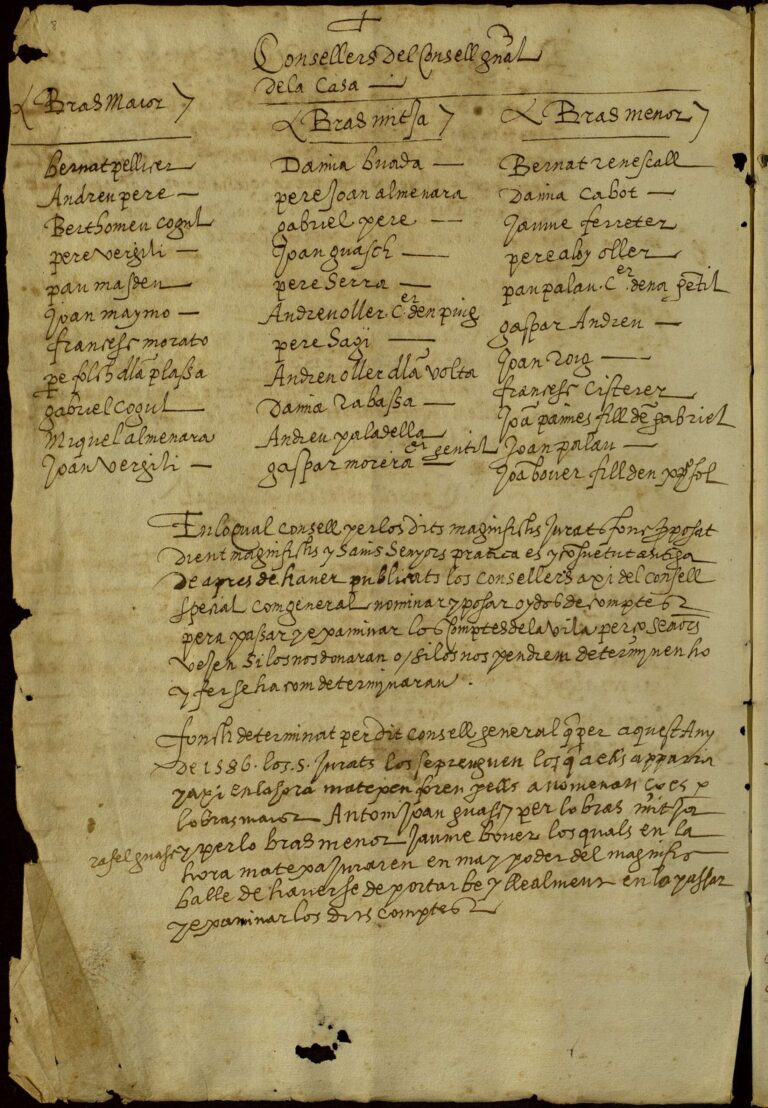 8
Consellers del Consell gnãl
dela Casa
Bras Maior
Bernat pelliser
Andreu pere
Berthomeu Cogul
pere vergili
pau masdeu
Joan maymo
francesc morato
pe folch dla plassa
gabriel Cogul
Miquel almenara
Joan vergili
Bras mitsa
Damia buada
pere Joan almenara
gabriel pere
Joan guasch
pere Serra
Andreu oller C.er den puig
pere Sagi
Andreu oller dla volta
Damia rabassa
Andreu paladella
gaspar morera er gentil
Bras menor
Bernat renescall
Damia Cabot
Jaume ferreter
pere aloy oller
pau palau C.er dena gentil
gaspar Andreu
Joan roig
francesc Cisterer
Joã palmes fill de gabriel
Joan palau
Joã bover fill den
En lo qual Consell per los dits magnifichs Jurats fonc pposat
dient magnifichs y savis Senyors pratica es y consuetut antiga
de apres de haver publicats los consellers axi del consell
special com general nominar y posar oydos de comptes
pera passar y examinar los comptes dela vila perço Senors
vejen si los nos donaran o si los nos pendrem determjnen ho
y ferseha com determjnaran.
fonch determinat per dit consell general q per aquest Any
de 1586. los .s. Jurats los se prenguen los q a ells apparia
y axi en la hora matexen foren p ells anomenats ço es p
lo bras maior Antoni Joan guasch per lo bras mitsa
rafel guasc y per lo bras menor Jaume bover los quals en la
hora matexa juraren en ma y poder del magnific
balle de haverse de portar be y llealment en lo passar
y examinar los dits comptes